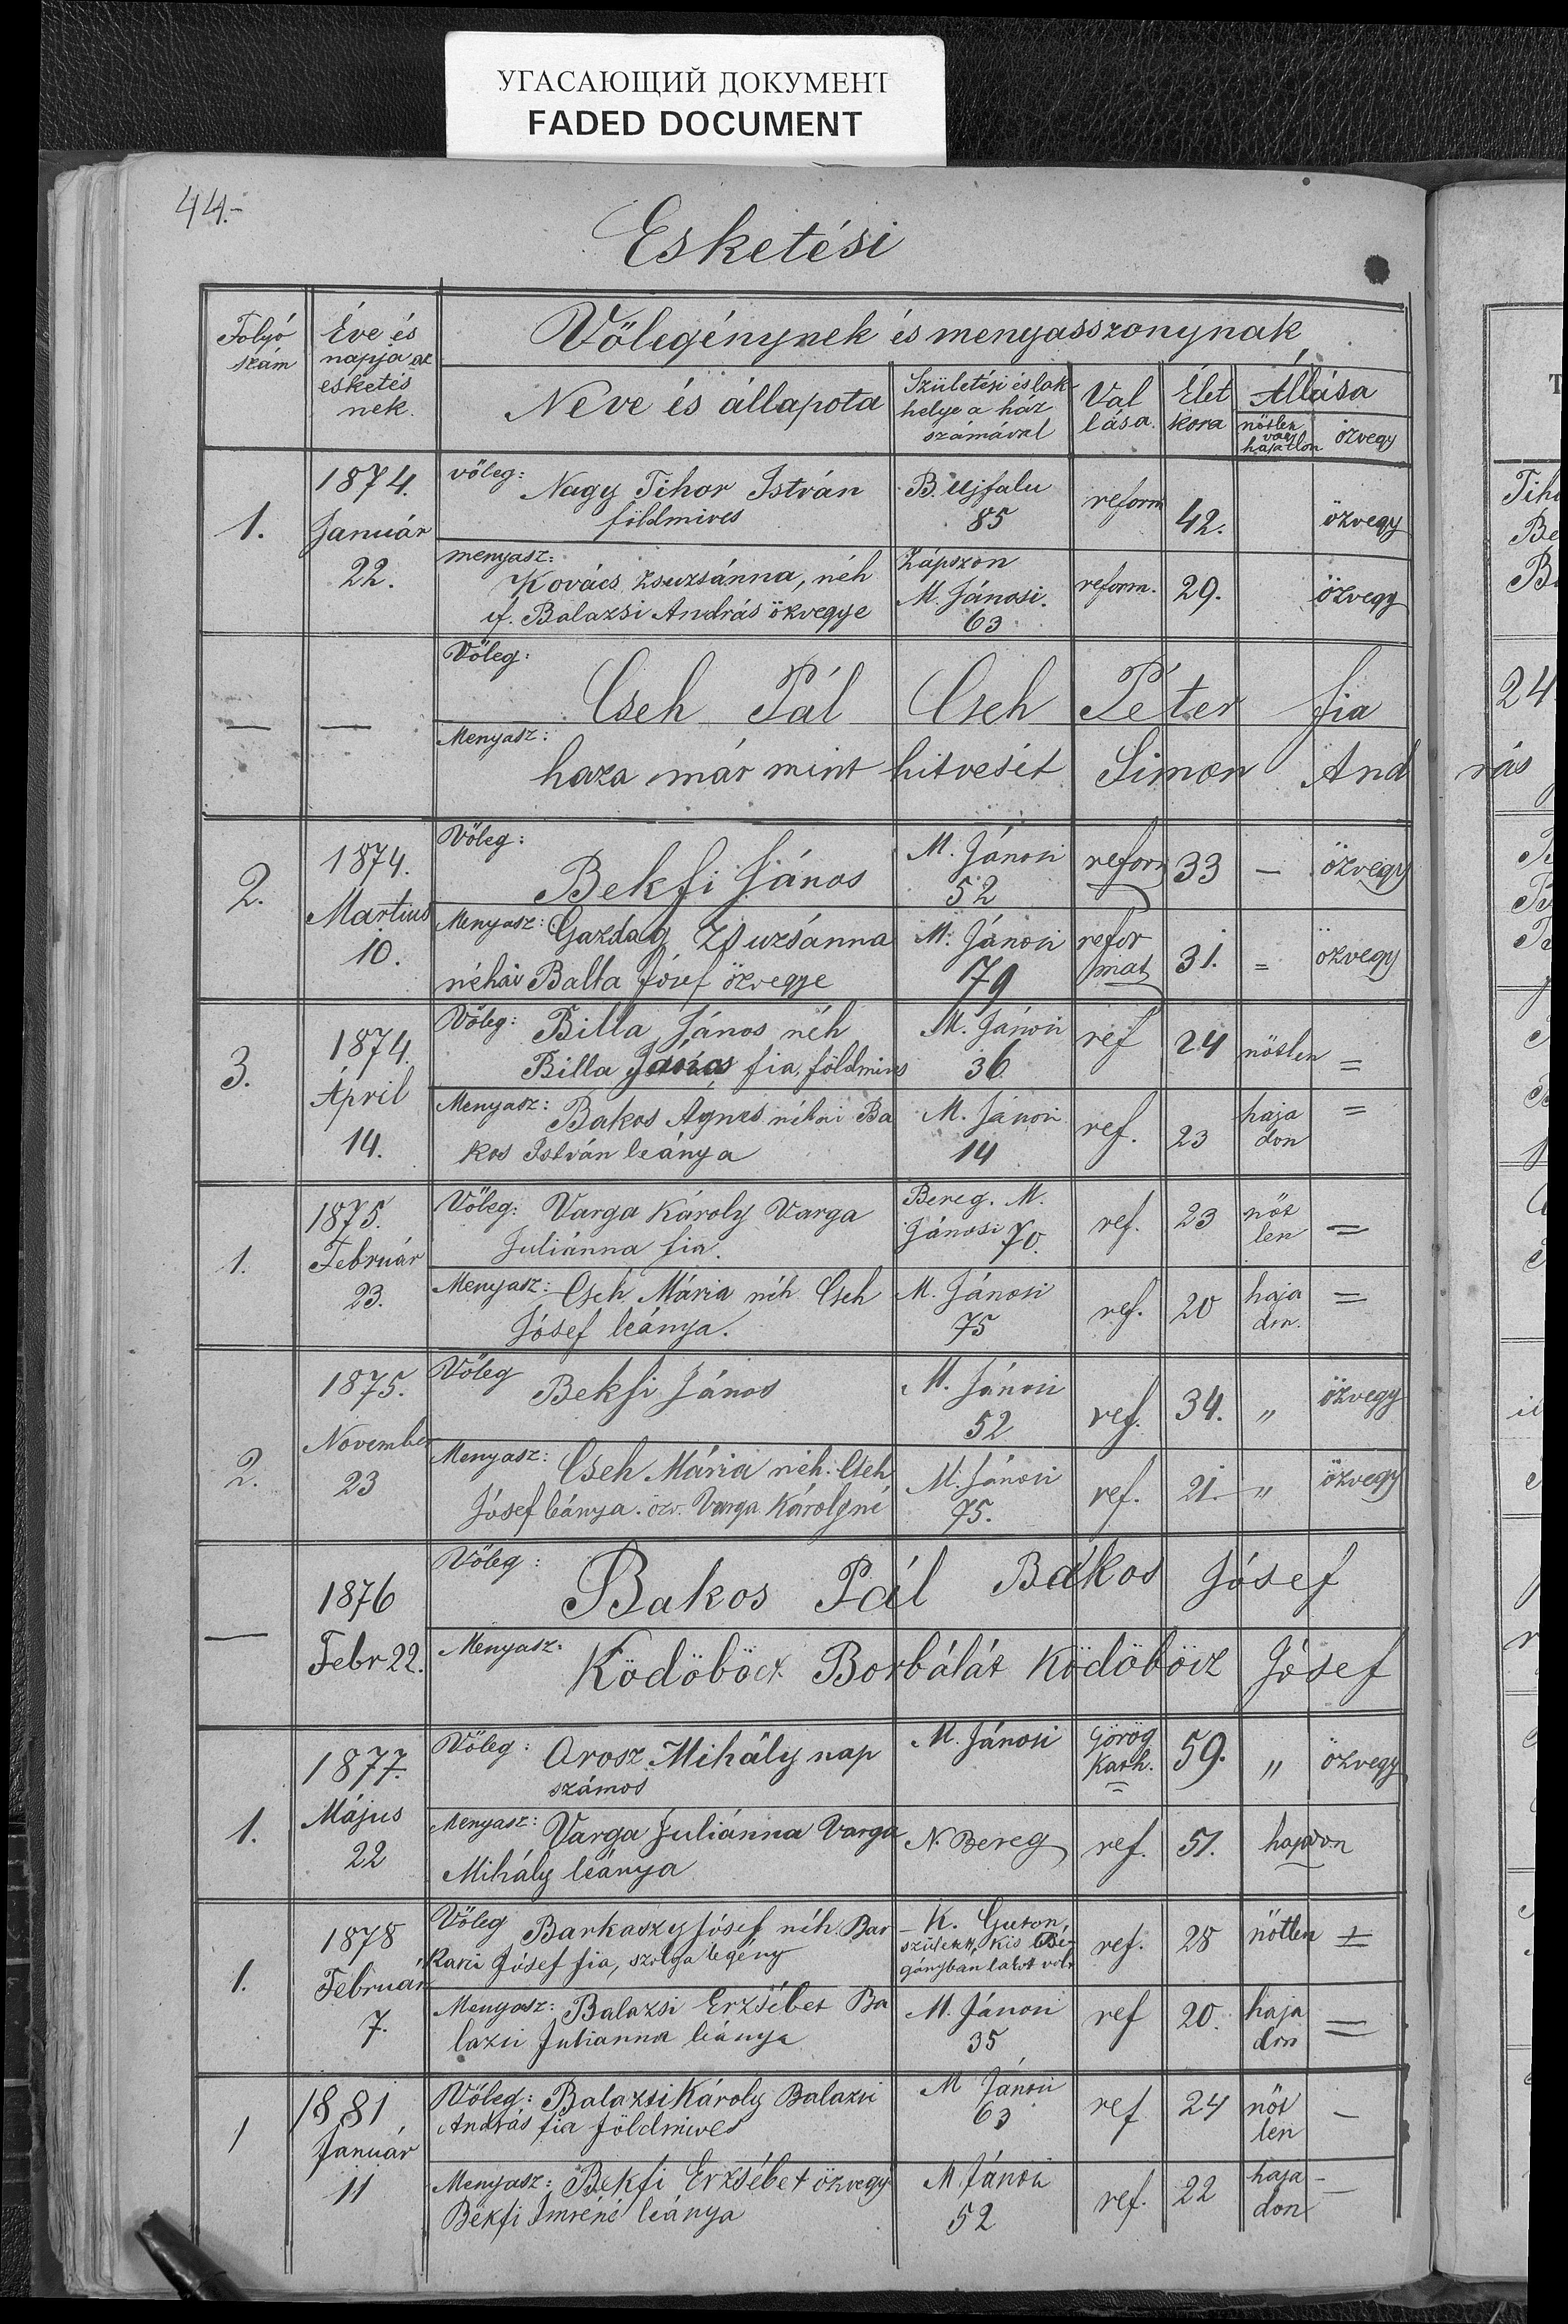 УГАСАЮЩИЙ ДОКУМЕНТ
FADED DOCUMENT
44.-
Esketési
Folyó szám
Éve és napja az esketésnek.
Vőlegénynek és menyasszonynak
Neve és állapota
Születési és lak helye a ház számával
Val lása.
Élet kora
Állása
nőtlen vagy hajadon
özvegy
1.
1874.
Január
22.
vőleg: Nagy Tihor István
földmives
B. Ujfalu
85
reform
42.
özvegy
menyasz:
Kovács Zsuzsánna, néh
if. Balazsi András özvegye
Zápszon
M. Jánosi.
63
reform.
29.
özvegy
— —
Vőleg:
Cseh Pál Cseh Péter fia
Menyasz:
haza már mint hitvesét Simon And rás
2.
1874.
Martius
10.
Vőleg:
Bekfi János
M. Jánosi
52
reform
33
—
özvegy
Menyasz: Gazdag Zsuzsánna
néhai Balla Jósef özvegye
M. Jánosi
79
refor
mat
31.
=
özvegy
3.
1874.
Ápril
14.
Vőleg: Billa János néh
Billa János fia, földmives
M. Jánosi
36
ref
24
nőtlen
=
Menyasz: Bakos Ágnes néhai Ba
kos István leánya
M. Jánosi
14
ref.
23
haja
don
=
1.
1875.
Február
23.
Vőleg: Varga Károly Varga
Juliánna fia.
Bereg. M.
Jánosi 70.
ref.
23
nőt
len
=
Menyasz: Cseh Mária néh Cseh
Jósef leánya.
M. Jánosi
75
ref.
20
haja
don.
=
2.
1875.
November
23
Vőleg
Bekfi János
M. Jánosi
52
ref.
34.
"
özvegy
Menyasz: Cseh Mária néh. Cseh
Jósef leánya. özv. Varga Károlyné
M. Jánosi
75.
ref.
21.
"
özvegy
—
1876
Febr 22.
Vőleg:
Bakos Pál Bakos Jósef
Menyasz:
Ködöböcz Borbálát Ködöböcz Jósef
1.
1877.
Május
22
Vőleg: Orosz Mihály nap
számos
M. Jánosi
Görög
Kath.
59.
"
özvegy
Menyasz: Varga Juliánna Varga
Mihály leánya
N. Bereg
ref.
51.
hajadon
1.
1878
Február
7.
Vőleg Barkaszy Jósef néh. Bar
kaszi Jósef fia, szolga legény
K. Guton,
született, Kis Bé-
gányban lakot volt
ref.
28
nőtlen
=
Menyasz: Balazsi Erzsébet Ba
lazsi Julianna leánya
M. Jánosi
35
ref
20.
haja
don
=
1
1881
Január
11
Vőleg: Balazsi Károly Balazsi
András fia földmives
M Jánosi
63
ref
24
nőt
len
—
Menyasz: Bekfi Erzsébet özvegy
Bekfi Imréné leánya
M Jánosi
52
ref.
22
haja
don
—